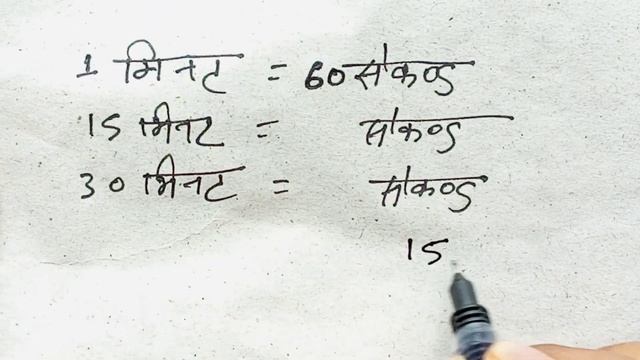 1 मिनट = 60 सेकण्ड
15 मिनट = सेकण्ड
30 मिनट = सेकण्ड
15